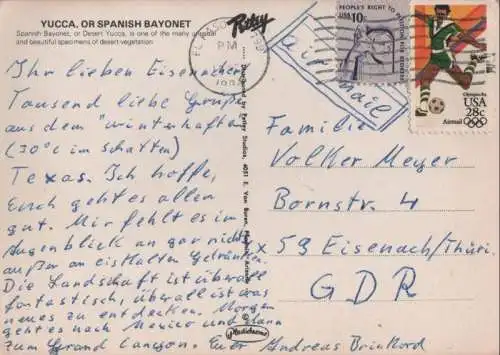 YUCCA, OR SPANISH BAYONET
Spanish Bayonet, or Desert Yucca, is one of the many unusual
and beautiful specimens of desert vegetation.
Petley
EL PASO
PM
PEOPLE'S RIGHT TO PETITION FOR REDRESS
USA 10c
Olympics 84
USA
28c
Airmail
air mail
Ihr lieben Eisenacher
Tausend liebe Grüße
aus dem "winterhaften"
(30°C im Schatten)
Texas. Ich hoffe,
Euch geht es allen
gut. Mir fehlt es im
Augenblick an gar nichts
außer an eiskalten Getränken.
Die Landschaft ist überall
fantastisch, überall ist was
neues zu entdecken. Morgen
geht es nach Mexico und dann
zum Grand Canyon. Euer Andreas Brinkord
Distributed by Petley Studios, 4051 E. Van Buren, Phoenix, Arizona
Plastichrome
Familie
Volker Meyer
Bornstr. 4
x 59 Eisenach/Thüri.
GDR